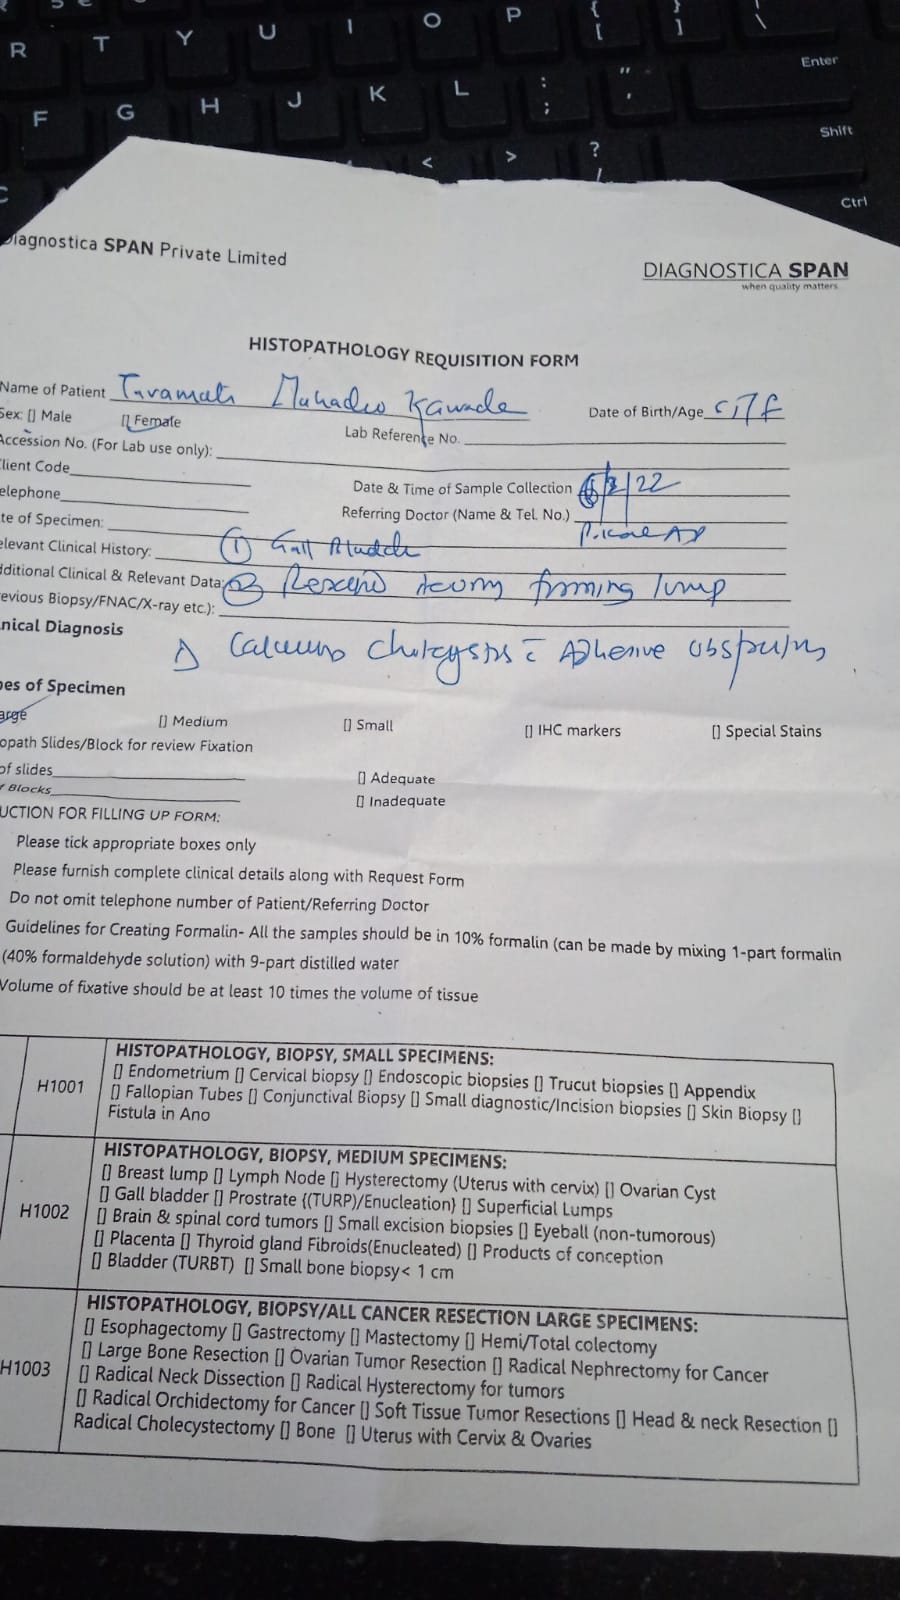 R T Y U I O P { [ } ] \
Enter
F G H J K L : ; " '
Shift
< > ? /
Ctrl
Diagnostica SPAN Private Limited
DIAGNOSTICA SPAN
when quality matters
HISTOPATHOLOGY REQUISITION FORM
Name of Patient Taramati Mahadeo Kawade Date of Birth/Age
Sex: [] Male [] Female
Lab Reference No.
Accession No. (For Lab use only):
lient Code
Date & Time of Sample Collection /22
elephone
Referring Doctor (Name & Tel. No.)
te of Specimen:
elevant Clinical History: ① Gall Bladder
dditional Clinical & Relevant Data: ② forming lump
evious Biopsy/FNAC/X-ray etc.):
nical Diagnosis
Δ Adhesive
es of Specimen
arge [] Medium [] Small [] IHC markers [] Special Stains
opath Slides/Block for review Fixation
of slides [] Adequate
Blocks [] Inadequate
UCTION FOR FILLING UP FORM:
Please tick appropriate boxes only
Please furnish complete clinical details along with Request Form
Do not omit telephone number of Patient/Referring Doctor
Guidelines for Creating Formalin- All the samples should be in 10% formalin (can be made by mixing 1-part formalin
(40% formaldehyde solution) with 9-part distilled water
Volume of fixative should be at least 10 times the volume of tissue
H1001
HISTOPATHOLOGY, BIOPSY, SMALL SPECIMENS:
[] Endometrium [] Cervical biopsy [] Endoscopic biopsies [] Trucut biopsies [] Appendix
[] Fallopian Tubes [] Conjunctival Biopsy [] Small diagnostic/Incision biopsies [] Skin Biopsy []
Fistula in Ano
H1002
HISTOPATHOLOGY, BIOPSY, MEDIUM SPECIMENS:
[] Breast lump [] Lymph Node [] Hysterectomy (Uterus with cervix) [] Ovarian Cyst
[] Gall bladder [] Prostrate {(TURP)/Enucleation} [] Superficial Lumps
[] Brain & spinal cord tumors [] Small excision biopsies [] Eyeball (non-tumorous)
[] Placenta [] Thyroid gland Fibroids(Enucleated) [] Products of conception
[] Bladder (TURBT) [] Small bone biopsy< 1 cm
H1003
HISTOPATHOLOGY, BIOPSY/ALL CANCER RESECTION LARGE SPECIMENS:
[] Esophagectomy [] Gastrectomy [] Mastectomy [] Hemi/Total colectomy
[] Large Bone Resection [] Ovarian Tumor Resection [] Radical Nephrectomy for Cancer
[] Radical Neck Dissection [] Radical Hysterectomy for tumors
[] Radical Orchidectomy for Cancer [] Soft Tissue Tumor Resections [] Head & neck Resection []
Radical Cholecystectomy [] Bone [] Uterus with Cervix & Ovaries